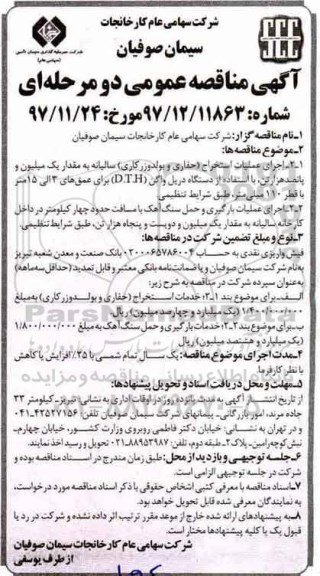 شرکت سهامی عام کارخانجات
سیمان صوفیان
آگهی مناقصه عمومی دو مرحله‌ای
شماره: ۹۷/۱۲/۱۱۸۶۳ مورخ: ۹۷/۱۱/۲۴
۱-نام مناقصه گزار: شرکت سهامی عام کارخانجات سیمان صوفیان
۲-موضوع مناقصه‌ها:
۲-۱-اجرای عملیات استخراج (حفاری و بولدوزرکاری) سالیانه به مقدار یک میلیون و
پانصد هزار تن، با استفاده از دستگاه دریل واگن (D.T.H) برای عمق‌های ۳ الی ۱۵ متر
با قطر ۱۱۰ میلی‌متر، طبق شرایط تنظیمی.
۲-۲-اجرای عملیات بارگیری و حمل سنگ آهک با مسافت حدود چهار کیلومتر در داخل
کارخانه سالیانه به مقدار یک میلیون و دویست و پنجاه هزار تن، طبق شرایط تنظیمی.
۳-نوع و مبلغ تضمین شرکت در مناقصه‌ها:
فیش واریزی نقدی به حساب ۰۲۰۰۰۶۵۷۸۶۰۰۴ بانک صنعت و معدن شعبه تبریز
به‌نام شرکت سیمان صوفیان و یا ضمانت‌نامه بانکی معتبر و قابل تمدید (حداقل سه‌ماهه)
به‌عنوان سپرده شرکت در مناقصه به شرح زیر:
الف-برای موضوع بند ۲-۱: خدمات استخراج (حفاری و بولدوزرکاری) به‌مبلغ
۱/۴۰۰/۰۰۰/۰۰۰ (یک میلیارد و چهارصد میلیون) ریال
ب-برای موضوع بند ۲-۲: خدمات بارگیری و حمل سنگ آهک به مبلغ ۱/۸۰۰/۰۰۰/۰۰۰
(یک میلیارد و هشتصد میلیون) ریال
۴-مدت اجرای موضوع مناقصه: یک سال تمام شمسی با ۲۵٪ افزایش یا کاهش
با نظر کارفرما.
۵-مهلت و محل دریافت اسناد و تحویل پیشنهادها:
از تاریخ انتشار آگهی به مدت پانزده روز در اوقات اداری به نشانی: تبریز-کیلومتر ۳۳
جاده مرند، امور بازرگانی-پیمانهای شرکت سیمان صوفیان تلفن: ۴۲۵۲۷۱۵۶-۰۴۱
و در تهران به نشانی: خیابان دکتر فاطمی روبروی وزارت کشور، خیابان چهارم-
نبش کوچه رامین-پلاک ۲-طبقه دوم، تلفن: ۸۸۹۵۳۹۸۷-۰۲۱ تحویل و رسید اخذ نمایند.
۶-جلسه توجیهی و بازدید از محل: طبق زمان مندرج در اسناد مناقصه بوده و
شرکت در جلسه توجیهی الزامی است.
۷-اسناد مناقصه با معرفی کتبی اشخاص حقوقی با ذکر اسناد مناقصه مورد درخواست،
به نمایندگان معرفی شده قابل تحویل خواهد بود.
۸-به پیشنهادهای ارائه شده خارج از موعد مقرر ترتیب اثر داده نشده و شرکت در رد یا
قبول یک یا کلیه پیشنهادها مختار است.
شرکت سهامی عام کارخانجات سیمان صوفیان
از طرف یوسفی